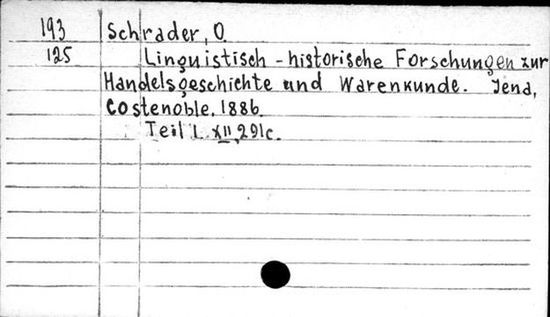 193 Schrader, O.
125 Linguistisch - historische Forschungen zur
Handelsgeschichte und Warenkunde. Jena,
Costenoble, 1886.
Teil I. XII, 291c.